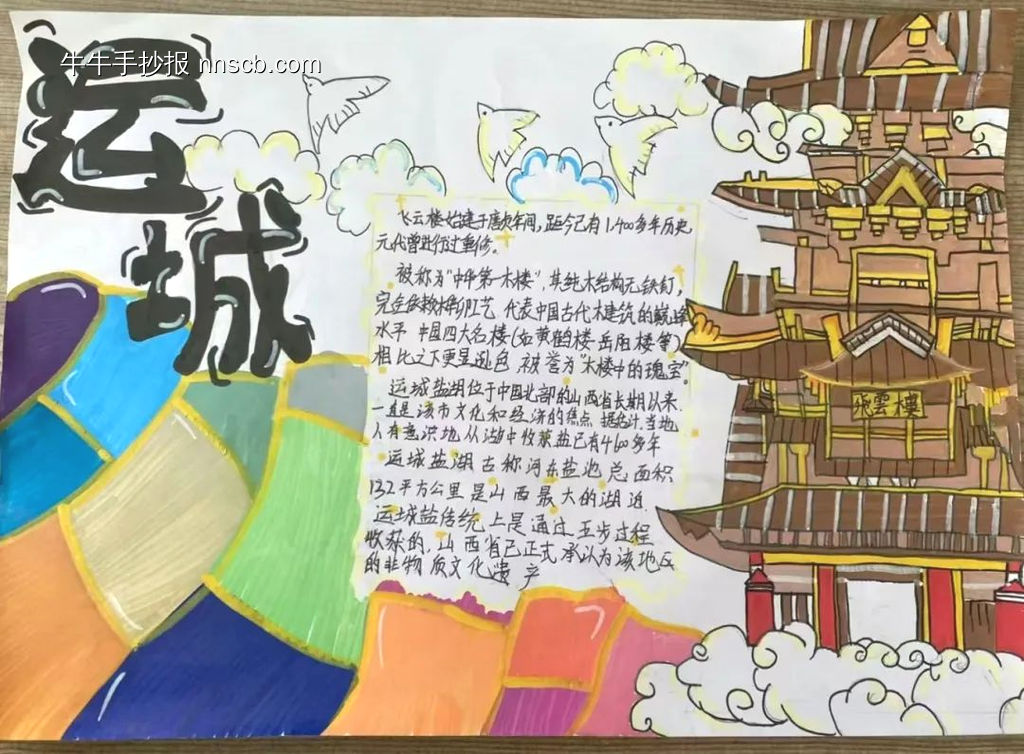 牛牛手抄报 nnscb.com
运
城
飞云楼始建于唐贞年间，距今已有1,400多年历史
元代曾进行过重修。
被称为"中华第一木楼"，其纯木结构无铁钉，
完全依赖榫卯工艺 代表中国古代木建筑的巅峰
水平 中国四大名楼(如黄鹤楼 岳阳楼等)
相比之下更显逊色 被誉为"木楼中的瑰宝"。
运城盐湖位于中国北部的山西省长期以来
一直是该市文化和经济的焦点 据估计,当地
人有意识地从湖中收获盐已有4600多年
运城盐湖古称河东盐池总面积
132平方公里是山西最大的湖泊
运城盐传统上是通过五步过程
收获的,山西省已正式承认为该地区
的非物质文化遗产
飛雲樓